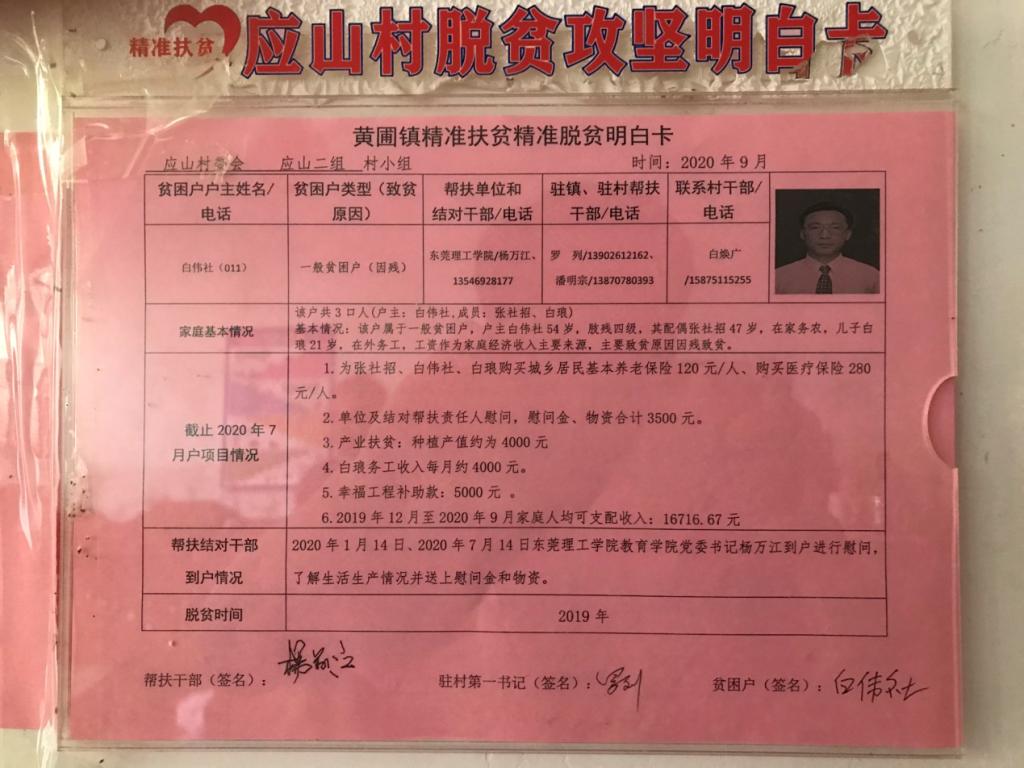 精准扶贫
应山村脱贫攻坚明白卡
黄圃镇精准扶贫精准脱贫明白卡
应山村委会 应山二组 村小组 时间：2020年9月
贫困户户主姓名/电话
贫困户类型（致贫原因）
帮扶单位和结对干部/电话
驻镇、驻村帮扶干部/电话
联系村干部/电话
白伟社（011）
一般贫困户（因残）
东莞理工学院/杨万江、
13546928177
罗 列/13902612162、
潘明宗/13870780393
白焕广
/15875115255
家庭基本情况
该户共3口人(户主：白伟社,成员：张社招、白琅)
基本情况：该户属于一般贫困户，户主白伟社54岁，肢残四级，其配偶张社招47岁，在家务农，儿子白
琅21岁，在外务工，工资作为家庭经济收入主要来源，主要致贫原因因残致贫。
截止2020年7
月户项目情况
1.为张社招、白伟社、白琅购买城乡居民基本养老保险120元/人、购买医疗保险280
元/人。
2.单位及结对帮扶责任人慰问，慰问金、物资合计3500元。
3.产业扶贫：种植产值约为4000元
4.白琅务工收入每月约4000元。
5.幸福工程补助款：5000元 。
6.2019年12月至2020年9月家庭人均可支配收入：16716.67元
帮扶结对干部
到户情况
2020年1月14日、2020年7月14日东莞理工学院教育学院党委书记杨万江到户进行慰问，
了解生活生产情况并送上慰问金和物资。
脱贫时间
2019年
帮扶干部（签名）：杨万江 驻村第一书记（签名）：罗列 贫困户（签名）：白伟社